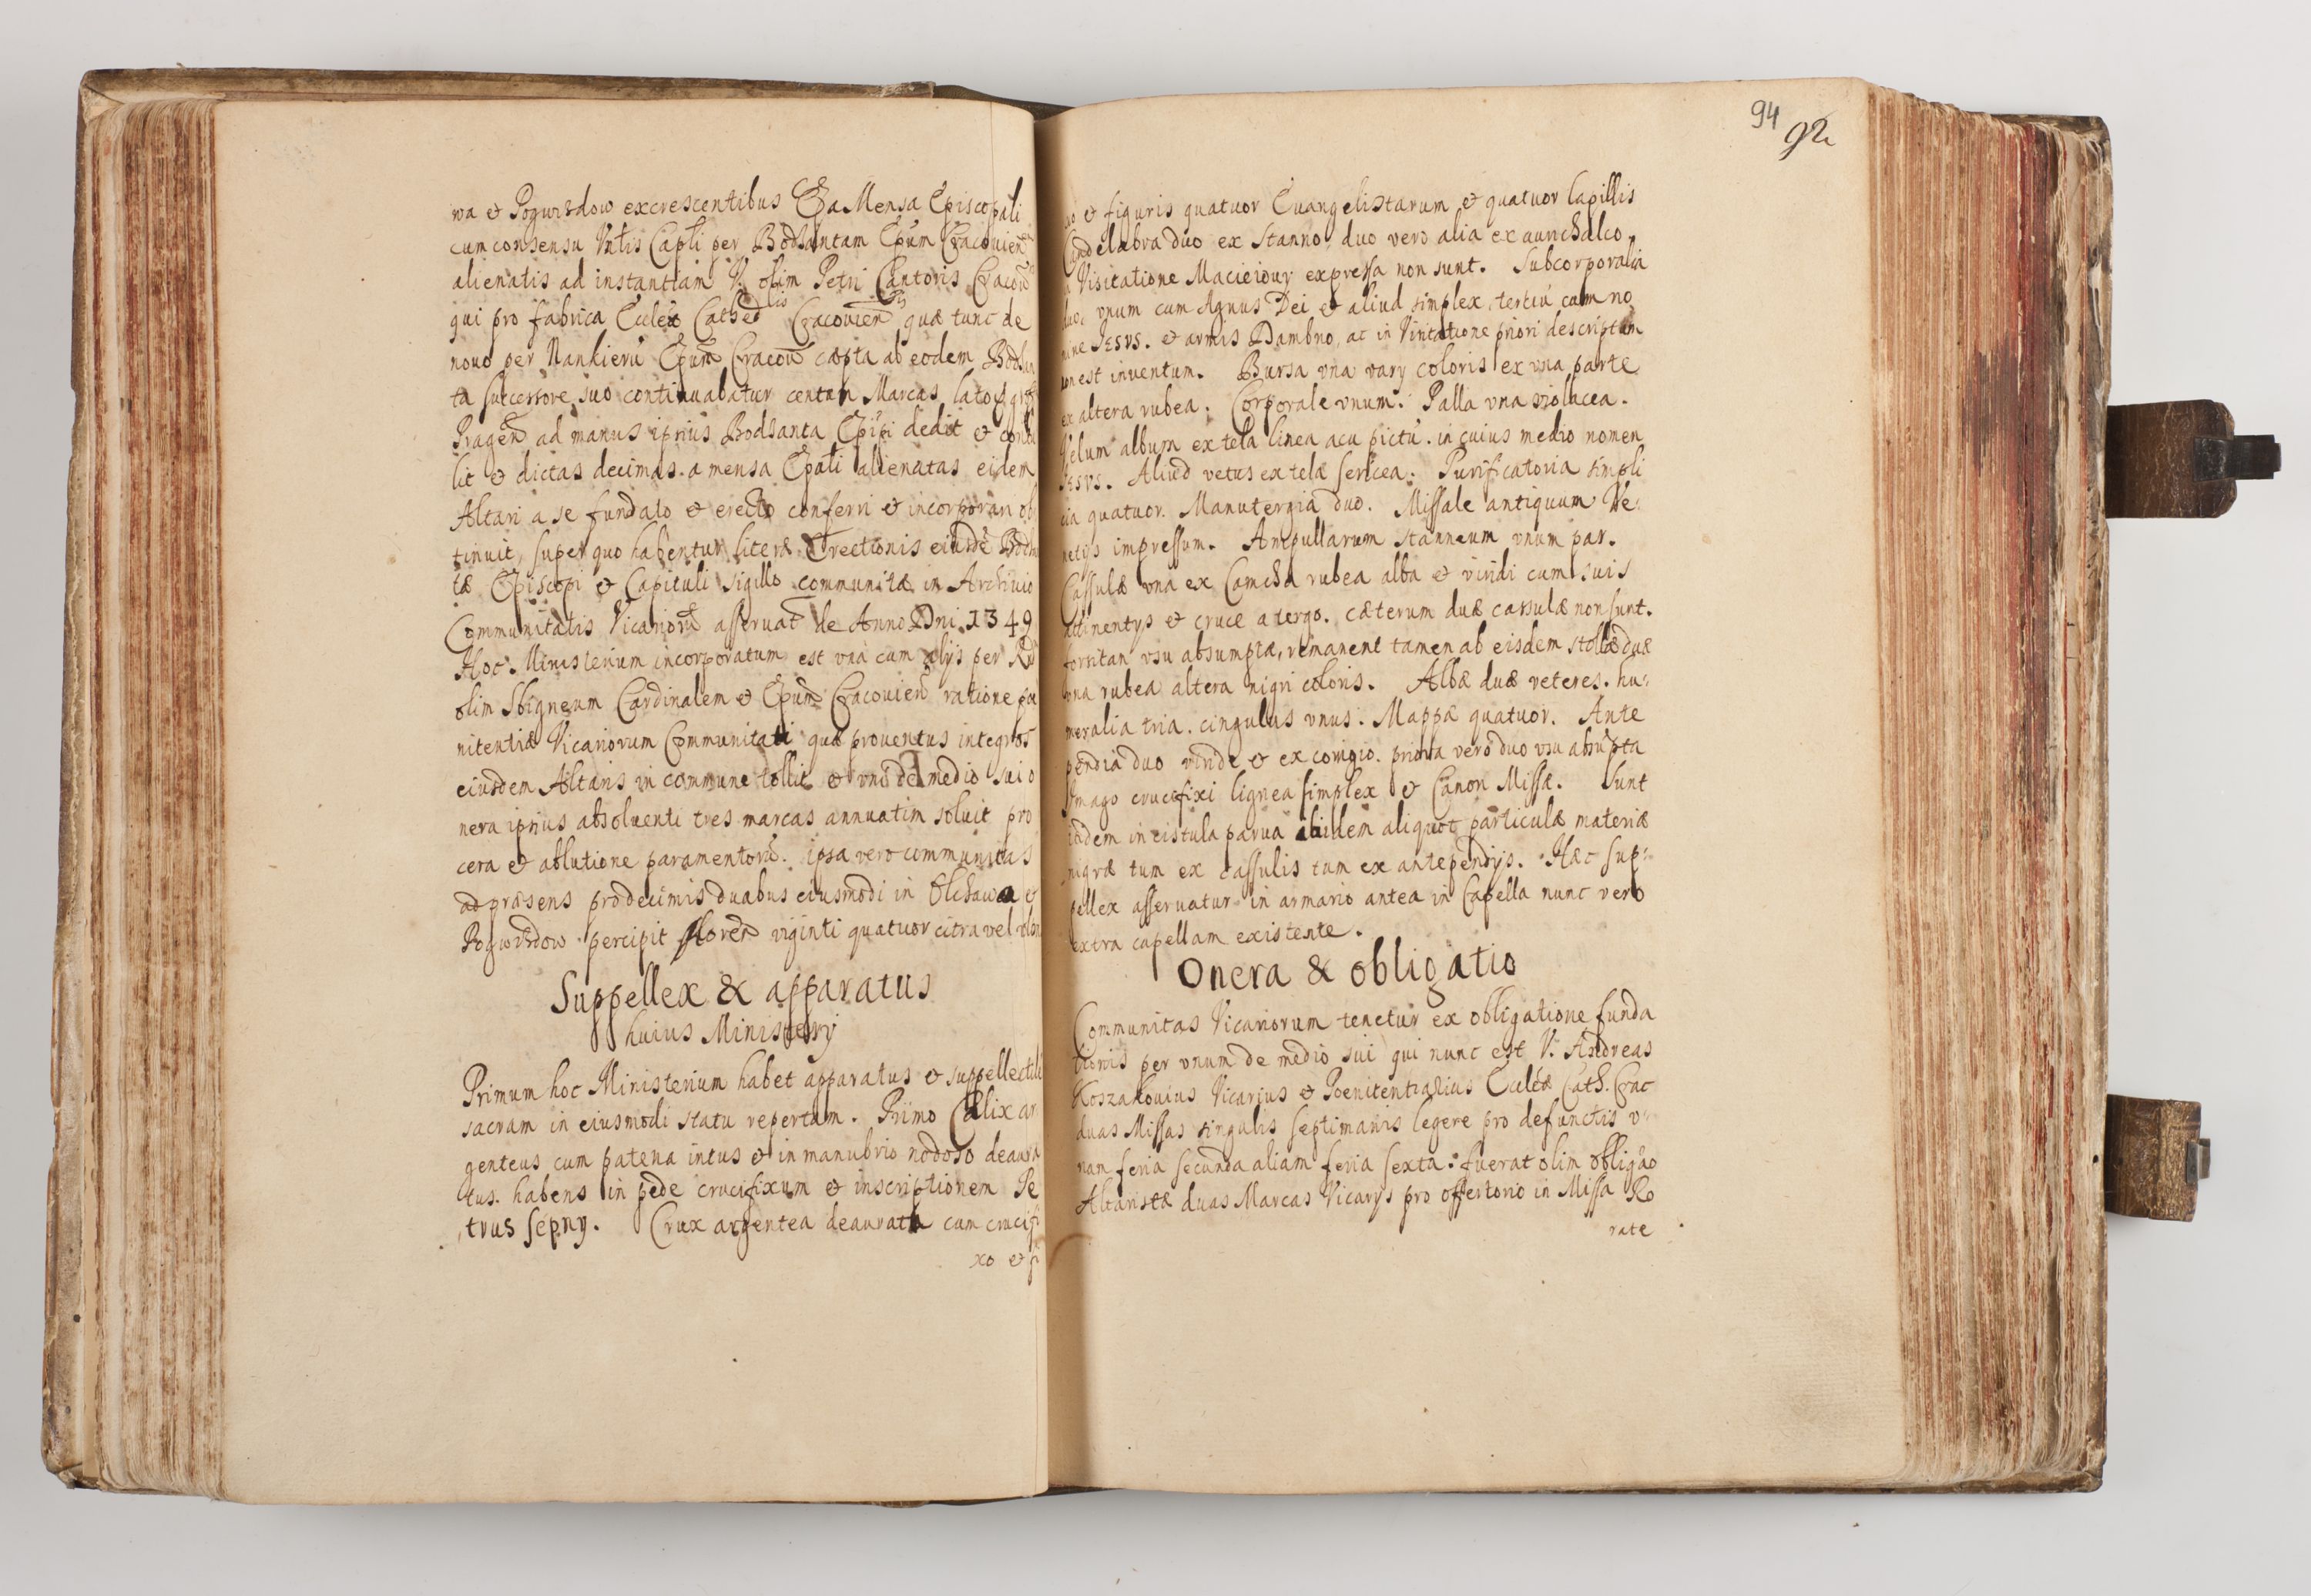 wa et Pogwisdow excrescentibus Et a Mensa Episcopali
cum consensu Vnlis Capli per Bodsantam Epum Cracouien
alienatis ad instantiam V. olim Petri Cantoris Cracou
qui pro fabrica Eccleae Cathedlis Cracouien quæ tunc de
nouo per Nankierū Epum Cracou cæpta ab eodem Bodsan
ta successore suo continuabatur centum Marcas latorg gros
Pragen ad manus ipsius Bodsanta Epipi dedit et contu
lit et dictas decimas a mensa Epali alienatas eidem
Altari a se fundato et erecto conferri et incorporari ob
tinuit, super quo habentur literæ Erectionis eiusdē Bodsan
tæ Episcopi et Capituli sigillo communitæ in Archiuio
Communitatis Vicariorū asseruat de Anno Dni 1349
Hoc Ministerium incorporatum est vna cum alijs per Rd
olim Sbigneum Cardinalem et Epum Cracouien ratione pæ
nitentiæ Vicariorum Communitati quæ prouentus integros
eiusdem Altaris in commune tollit et vni de medio sui o
nera ipsius absoluenti tres marcas annuatim soluit pro
cera et ablutione paramentorū. ipsa vero communitas
ad præsens pro decimis duabus eiusmodi in Olchawa et
Pogwisdow percipit floren viginti quatuor citra vel vltra
Suppellex & apparatus
huius Ministerij
Primum hoc Ministerium habet apparatus et suppellectile
sacram in eiusmodi statu repertam. Primo Calix ar
genteus cum patena intus et in manubrio nodoso deaura
tus. habens in pede crucifixum et inscriptionem Pe
trus Sepny. Crux argentea deaurata cum crucifi
xo et fi
94
92
xo et figuris quatuor Euangelistarum et quatuor lapillis
Candelabra duo ex stanno, duo vero alia ex aurichalco,
Visitatione Macieiouij expressa non sunt. Subcorporalia
duo, vnum cum Agnus Dei et aliud simplex, tertiū cum no
mine IESVS. et armis Dambno, ac in Visitatione priori descriptum
non est inventum. Bursa vna varij coloris ex vna parte
ex altera rubea. Corporale vnum. Palla vna violacea.
Velum album ex tela linea acu pictū. in cuius medio nomen
IESVS. Aliud vetus ex tela sericea. Purificatoria simpli
cia quatuor. Manutergia duo. Missale antiquum Ve:
netijs impressum. Ampullarum stanneum vnum par.
Cassulæ vna ex Camcha rubea alba et viridi cum suis
attinentijs et cruce a tergo. cæterum duæ cassulæ non sunt.
forsitan vsu absumptæ, remanent tamen ab eisdem stollæ duæ
vna rubea altera nigri coloris. Albæ duæ veteres. hu:
meralia tria. cingulus vnus. Mappæ quatuor. Ante
pendia duo viride et ex corigio. priora vero duo vsu absūpta
Imago crucifixi lignea simplex et Canon Missæ. Sunt
in cistula parua ibidem aliquot particulæ materiæ
nigræ tum ex cassulis tum ex antependijs. Hæc sup:
pellex asseruatur in armario antea in Capella nunc vero
extra capellam existente.
Onera & obligatio
Communitas Vicariorum tenetur ex obligatione funda
tionis per vnum de medio sui qui nunc est V. Andreas
Koszakouius Vicarius et Poenitentiarius Eccleæ Cath. Crac
duas Missas singulis septimanis legere pro defunctis v:
nam feria secunda aliam feria sexta. fuerat olim obligao
Altaristæ duas Marcas Vicarijs pro offertorio in Missa Ro
rate